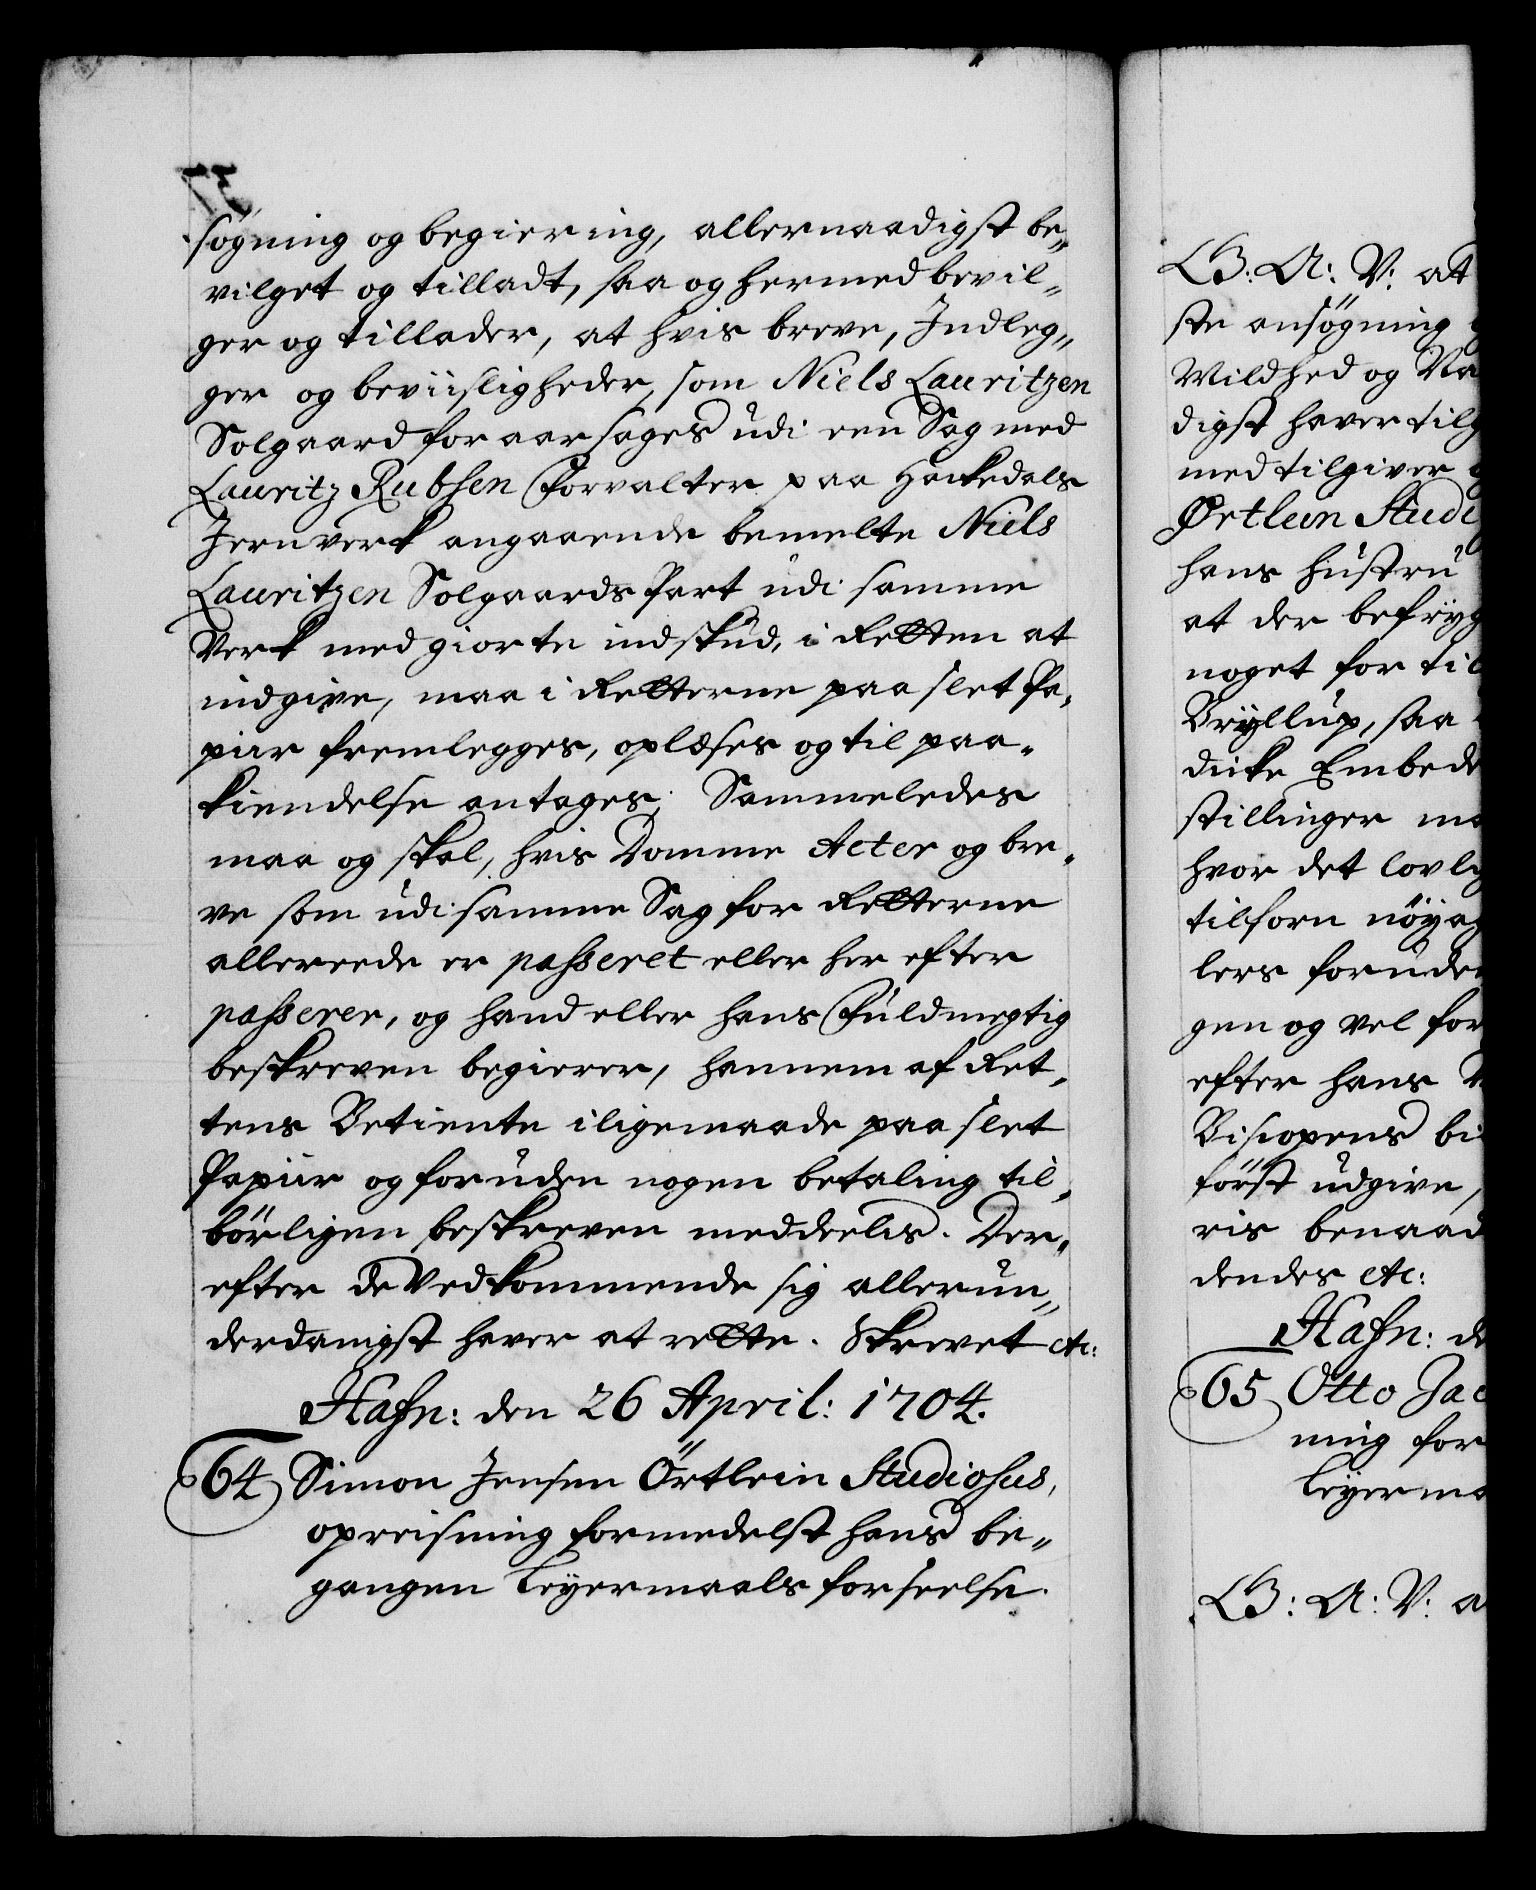 søgning og begiering, allernaadigst be„
vilget og tilladt, saa og hermed bevil„
ger og tillader, at hvis breve, Indleg„
ger og beviisligheder, som Niels Lauritzen
Solgaard foraarsages udi een Sag med
Lauritz Rubsen Forvalter paa Hackedals
Jernverk angaaende bemelte Niels
Lauritzen Solgaards Part udi samme
Verk med giorte indskud, i Retten at
indgive, maa i Retterne paa slet Pa„
piir fremlegges, oplæses og til paa„
kiendelse antages; Sammeledes
maa og skal, hvis Domme Acter og bre„
ve som udi samme Sag for Retterne
allereede er passeret eller her efter
passerer, og hand eller hans Fuldmegtig
beskreven begierer, hannem af Ret„
tens Betiente iligemaade paa slet
Papiir og foruden nogen betaling til„
börligen beskreven meddeelis. Der„
efter de Vedkommende sig allerun„
derdanigst haver at rette. Skrevet etc:
Hafn: den 26 April: 1704.
64 Simon Jensen Örtlein Studiosus,
opreisning formedelst hans be„
gangen Leyermaals forseelse.
G: A: V: at
ste ansøgning
Wildhed og Na
digst haver tilg
med tilgiver
Ørtlein Studi
hans hustru
at der befryg
noget for til
Bryllup, saa
dicke Embede
stillinger ma
hvor det lovlig
tilforn nöyag
lers foruden
gen og vel for
efter hans
Biscopens bi
först udgive,
ris benaad
dendes etc:
Hafn: de
65 Otto Jac
ning for
Leyerma
G: A: V: a